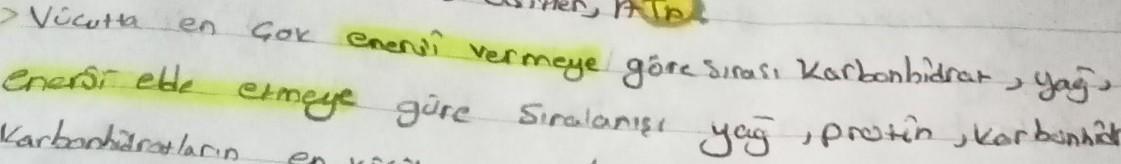 ATP
> Vücutta en çok enerji vermeye göre sırası Karbonhidrat, yağ,
enerji elde etmeye göre Sıralanışı yağ, protin, karbonhid
Karbonhidratların en